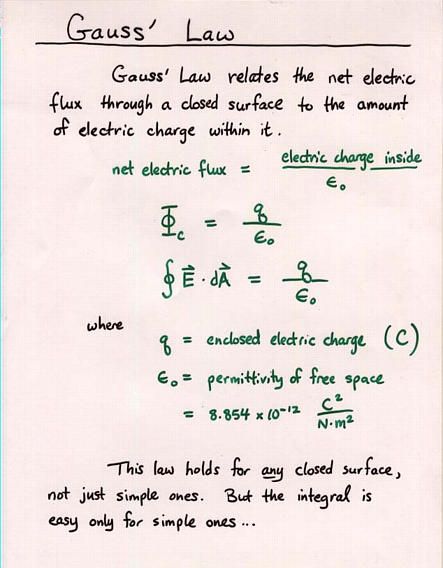 Gauss' Law
Gauss' Law relates the net electric
flux through a closed surface to the amount
of electric charge within it.
net electric flux = electric charge inside / ϵ₀
Φ_c = q / ϵ₀
∮ E⃗ · dA⃗ = q / ϵ₀
where
q = enclosed electric charge (C)
ϵ₀ = permittivity of free space
= 8.854 × 10⁻¹² C² / N·m²
This law holds for any closed surface,
not just simple ones. But the integral is
easy only for simple ones ...